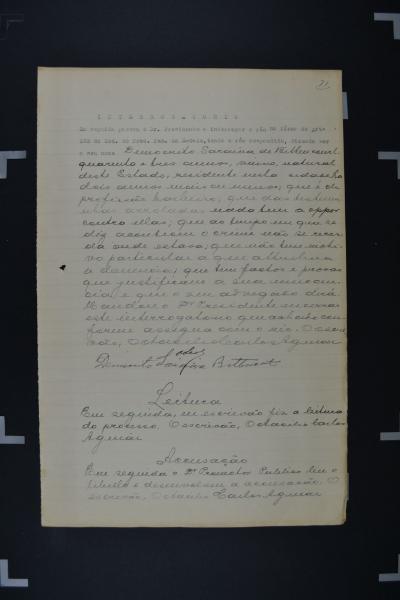 71
INTERROGATORIO
Em seguida passou o Dr. Presidente a interrogar o réo na fórma do art.
do Est., tendo o réo respondido, dizendo ser
o seu nome Democrito Saraiva de Bittencourt
quarenta e tres annos, natural
deste Estado, residente nesta cidade ha
dois annos mais ou menos; que é de
profissão barbeiro; que das testem
unhas arroladas nada tem a oppor
contra ellas; que ao tempo em que se
diz acontecera o crime não se recor
da onde estava; que não tem moti
vo particular a que attribua
a denuncia; que tem factos e provas
que justificam a sua innocen
cia e que o seu advogado dirá.
Mandou o Dr. Presidente encerrar
este interrogatorio que achado con
forme assigna com o réo. O escri
vão, Octacilio Carlos Aguiar
Democrito Saraiva Bittencourt
Leitura
Em seguida, eu escrivão fiz a leitura
do processo. O escrivão, Octacilio Carlos
Aguiar
Accusação
Em seguida o Dr. Promotor Publico leu o
libello e desenvolveu a accusação. O
escrivão, Octacilio Carlos Aguiar